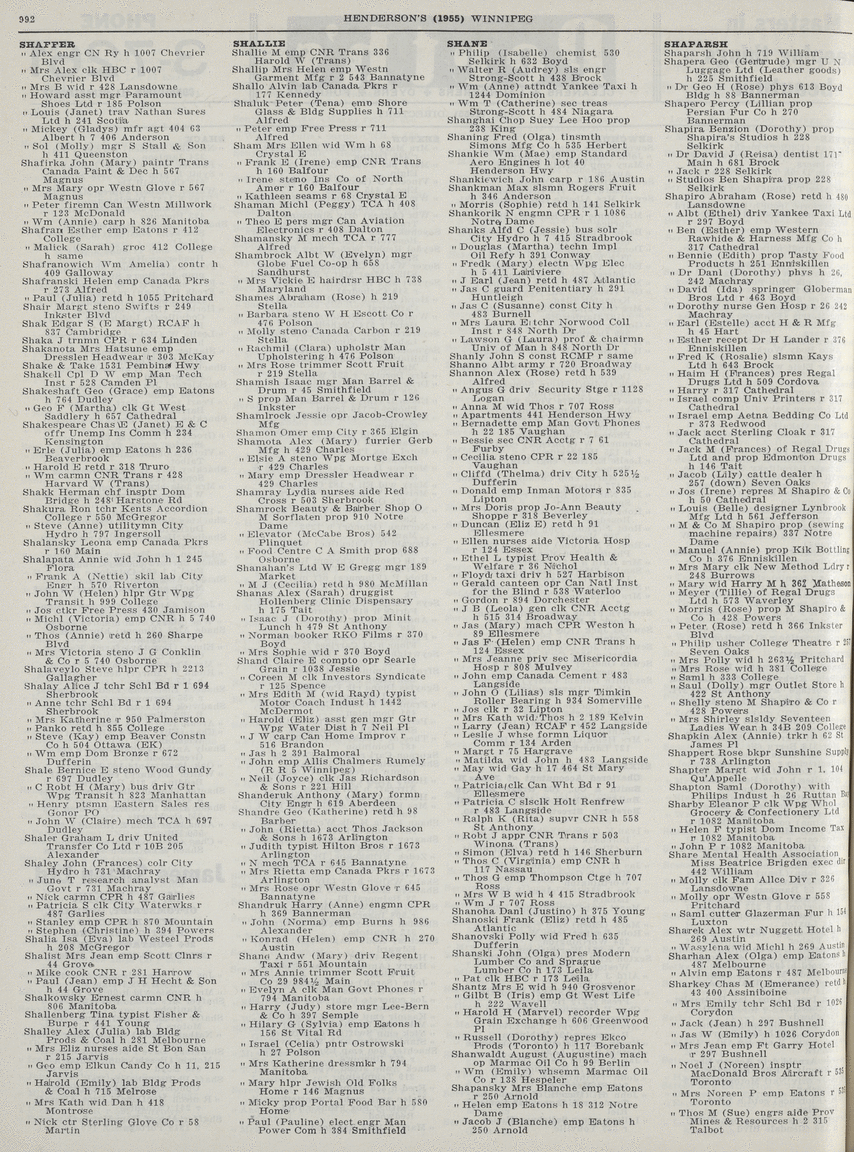 992
HENDERSON'S (1955) WINNIPEG
SHAFFER
" Alex engr CN Ry h 1007 Chevrier
Blvd
" Mrs Alex clk HBC r 1007
Chevrier Blvd
" Mrs B wid r 428 Lansdowne
" Howard asst mgr Paramount
Shoes Ltd r 185 Polson
" Louis (Janet) trav Nathan Sures
Ltd h 241 Scotia
" Mickey (Gladys) mfr agt 404 63
Albert h 7 406 Anderson
" Sol (Molly) mgr S Stall & Son
h 411 Queenston
Shafirka John (Mary) paintr Trans
Canada Paint & Dec h 567
Magnus
" Mrs Mary opr Westn Glove r 567
Magnus
" Peter firemn Can Westn Millwork
r 123 McDonald
" Wm (Annie) carp h 826 Manitoba
Shafran Esther emp Eatons r 412
College
" Malick (Sarah) groc 412 College
h same
Shafranowich Wm Amelia) contr h
409 Galloway
Shafranski Helen emp Canada Pkrs
r 273 Alfred
" Paul (Julia) retd h 1055 Pritchard
Shair Margt steno Swifts r 249
Inkster Blvd
Shak Edgar S (E Margt) RCAF h
837 Cambridge
Shaka J trnmn CPR r 634 Linden
Shakanota Mrs Hatsume emp
Dressler Headwear r 303 McKay
Shake & Take 1531 Pembina Hwy
Shakell Cpl D W emp Man Tech
Inst r 528 Camden Pl
Shakeshaft Geo (Grace) emp Eatons
h 764 Dudley
" Geo F (Martha) clk Gt West
Saddlery h 657 Cathedral
Shakespeare Chas E (Janet) E & C
offr Unemp Ins Comm h 234
Kensington
" Erle (Julia) emp Eatons h 236
Beaverbrook
" Harold E retd r 318 Truro
" Wm carmn CNR Trans r 428
Harvard W (Trans)
Shakk Herman chf insptr Dom
Bridge h 248 Harstone Rd
Shakura Ron tchr Kents Accordion
College r 550 McGregor
" Steve (Anne) utilitymn City
Hydro h 797 Ingersoll
Shalansky Leona emp Canada Pkrs
r 160 Main
Shalapata Annie wid John h 1 245
Flora
" Frank A (Nettie) skil lab City
Engr h 570 Riverton
" John W (Helen) hlpr Gtr Wpg
Transit h 999 College
" Jos ctkr Free Press 430 Jamison
" Michl (Victoria) emp CNR h 5 740
Osborne
" Thos (Annie) retd h 260 Sharpe
Blvd
" Mrs Victoria steno J G Conklin
& Co r 5 740 Osborne
Shalaveylo Steve hlpr CPR h 2213
Gallagher
Shalay Alice J tchr Schl Bd r 1 694
Sherbrook
" Anne tchr Schl Bd r 1 694
Sherbrook
" Mrs Katherine r 950 Palmerston
" Panko retd h 855 College
" Steve (Kay) emp Beaver Constn
Co h 504 Ottawa (EK)
" Wm emp Dom Bronze r 672
Dufferin
Shale Bernice E steno Wood Gundy
r 697 Dudley
" C Robt H (Mary) bus driv Gtr
Wpg Transit h 823 Manhattan
" Henry ptsmn Eastern Sales res
Gonor PO
" John W (Claire) mech TCA h 697
Dudley
Shaler Graham L driv United
Transfer Co Ltd r 10B 205
Alexander
Shaley John (Frances) colr City
Hydro h 731 Machray
" June T research analyst Man
Govt r 731 Machray
" Nick carmn CPR h 487 Garlies
" Patricia S clk City Waterwks r
487 Garlies
" Stanley emp CPR h 870 Mountain
" Stephen (Christine) h 394 Powers
Shalia Isa (Eva) lab Westeel Prods
h 208 McGregor
Shalist Mrs Jean emp Scott Clnrs r
44 Grove
" Mike cook CNR r 281 Harrow
" Paul (Jean) emp J H Hecht & Son
h 44 Grove
Shalkowsky Ernest carmn CNR h
806 Manitoba
Shallenberg Tina typist Fisher &
Burpe r 441 Young
Shalley Alex (Julia) lab Bldg
Prods & Coal h 281 Melbourne
" Mrs Eliz nurses aide St Bon San
r 215 Jarvis
" Geo emp Elkun Candy Co h 11, 215
Jarvis
" Harold (Emily) lab Bldg Prods
& Coal h 715 Melrose
" Mrs Kath wid Dan h 418
Montrose
" Nick ctr Sterling Glove Co r 58
Martin
SHALLIE
Shallie M emp CNR Trans 336
Harold W (Trans)
Shallip Mrs Helen emp Westn
Garment Mfg r 2 543 Bannatyne
Shallo Alvin lab Canada Pkrs r
177 Kennedy
Shaluk Peter (Tena) emp Shore
Glass & Bldg Supplies h 711
Alfred
" Peter emp Free Press r 711
Alfred
Sham Mrs Ellen wid Wm h 68
Crystal E
" Frank E (Irene) emp CNR Trans
h 160 Balfour
" Irene steno Ins Co of North
Amer r 160 Balfour
" Kathleen seams r 68 Crystal E
Shaman Michl (Peggy) TCA h 408
Dalton
" Theo E pers mgr Can Aviation
Electronics r 408 Dalton
Shamansky M mech TCA r 777
Alfred
Shambrook Albt W (Evelyn) mgr
Globe Fuel Co-op h 658
Sandhurst
" Mrs Vickie E hairdrsr HBC h 738
Maryland
Shames Abraham (Rose) h 219
Stella
" Barbara steno W H Escott Co r
476 Polson
" Molly steno Canada Carbon r 219
Stella
" Rachmil (Clara) upholstr Man
Upholstering h 476 Polson
" Mrs Rose trimmer Scott Fruit
r 219 Stella
Shamish Isaac mgr Man Barrel &
Drum r 45 Smithfield
" S prop Man Barrel & Drum r 126
Inkster
Shamlrock Jessie opr Jacob-Crowley
Mfg
Shamon Omer emp City r 365 Elgin
Shamota Alex (Mary) furrier Gerb
Mfg h 429 Charles
" Elsie A steno Wpg Mortge Exch
r 429 Charles
" Mary emp Dressler Headwear r
429 Charles
Shamray Lydia nurses aide Red
Cross r 503 Sherbrook
Shamrock Beauty & Barber Shop O
M Sorflaten prop 910 Notre
Dame
" Elevator (McCabe Bros) 542
Plinquet
" Food Centre C A Smith prop 688
Osborne
Shanahan's Ltd W E Gregg mgr 189
Market
" M J (Cecilia) retd h 980 McMillan
Shanas Alex (Sarah) druggist
Hollenberg Clinic Dispensary
h 175 Tait
" Isaac J (Dorothy) prop Minit
Lunch h 479 St Anthony
" Norman booker RKO Films r 370
Boyd
" Mrs Sophie wid r 370 Boyd
Shand Claire E compto opr Searle
Grain r 1038 Jessie
" Coreen M clk Investors Syndicate
r 125 Spence
" Mrs Edith M (wid Rayd) typist
Motor Coach Indust h 1442
McDermot
" Harold (Eliz) asst gen mgr Gtr
Wpg Water Dist h 7 Neil Pl
" J W carp Can Home Improv r
516 Brandon
" Jas h 2 391 Balmoral
" John emp Allis Chalmers Rumely
(R R 5 Winnipeg)
" Neil (Joyce) clk Jas Richardson
& Sons r 221 Hill
Shanderuk Anthony (Mary) formn
City Engr h 619 Aberdeen
Shandre Geo (Katherine) retd h 98
Barber
" John (Rietta) acct Thos Jackson
& Sons h 1673 Arlington
" Judith typist Hilton Bros r 1673
Arlington
" N mech TCA r 645 Bannatyne
" Mrs Rietta emp Canada Pkrs r 1673
Arlington
" Mrs Rose opr Westn Glove r 645
Bannatyne
Shandruk Harry (Anne) engmn CPR
h 369 Bannerman
" John (Norma) emp Burns h 986
Alexander
" Konrad (Helen) emp CNR h 270
Austin
Shane Andw (Mary) driv Regent
Taxi r 551 Mountain
" Mrs Annie trimmer Scott Fruit
Co 29 984½ Main
" Evelyn A clk Man Govt Phones r
794 Manitoba
" Harry (Judy) store mgr Lee-Bern
& Co h 397 Semple
" Hilary G (Sylvia) emp Eatons h
156 St Vital Rd
" Israel (Celia) pntr Ostrowski
h 27 Polson
" Mrs Katherine dressmkr h 794
Manitoba
" Mary hlpr Jewish Old Folks
Home r 146 Magnus
" Micky prop Portal Food Bar h 580
Home
" Paul (Pauline) elect engr Man
Power Com h 384 Smithfield
SHANE
" Philip (Isabelle) chemist 530
Selkirk h 632 Boyd
" Walter R (Audrey) sls engr
Strong-Scott h 438 Brock
" Wm (Anne) attndt Yankee Taxi h
1244 Dominion
" Wm T (Catherine) sec treas
Strong-Scott h 484 Niagara
Shanghai Chop Suey Lee Hoo prop
238 King
Shaning Fred (Olga) tinsmth
Simons Mfg Co h 535 Herbert
Shankie Wm (Mae) emp Standard
Aero Engines h lot 40
Henderson Hwy
Shankiewich John carp r 186 Austin
Shankman Max slsmn Rogers Fruit
h 346 Anderson
" Morris (Sophie) retd h 141 Selkirk
Shankorik N engmn CPR r 1 1086
Notre Dame
Shanks Alfd C (Jessie) bus solr
City Hydro h 7 415 Stradbrook
" Douglas (Martha) techn Impl
Oil Refy h 391 Conway
" Fredk (Mary) electn Wpg Elec
h 5 411 Lariviere
" J Earl (Jean) retd h 487 Atlantic
" Jas C guard Penitentiary h 291
Huntleigh
" Jas C (Susanne) const City h
483 Burnell
" Mrs Laura E tchr Norwood Coll
Inst r 848 North Dr
" Lawson G (Laura) prof & chairmn
Univ of Man h 848 North Dr
Shanly John S const RCMP r same
Shanno Albt army r 720 Broadway
Shannon Alex (Rose) retd h 539
Alfred
" Angus G driv Security Stge r 1128
Logan
" Anna M wid Thos r 707 Ross
" Apartments 441 Henderson Hwy
" Bernadette emp Man Govt Phones
h 22 185 Vaughan
" Bessie sec CNR Acctg r 7 61
Furby
" Cecilia steno CPR r 22 185
Vaughan
" Cliffd (Thelma) driv City h 525½
Dufferin
" Donald emp Inman Motors r 835
Lipton
" Mrs Doris prop Jo-Ann Beauty
Shoppe r 318 Beverley
" Duncan (Eliz E) retd h 91
Ellesmere
" Ellen nurses aide Victoria Hosp
r 124 Essex
" Ethel L typist Prov Health &
Welfare r 36 Nichol
" Floyd taxi driv h 527 Harbison
" Gerald canteen opr Can Natl Inst
for the Blind r 538 Waterloo
" Gordon r 894 Dorchester
" J B (Leola) gen clk CNR Acctg
h 515 314 Broadway
" Jas (Mary) mach CPR Weston h
89 Ellesmere
" Jas F (Helen) emp CNR Trans h
124 Essex
" Mrs Jeanne priv sec Misericordia
Hosp r 808 Mulvey
" John emp Canada Cement r 483
Langside
" John O (Lilias) sls mgr Timkin
Roller Bearing h 934 Somerville
" Jos clk r 32 Lipton
" Mrs Kath wid Thos h 2 189 Kelvin
" Larry (Jean) RCAF r 452 Langside
" Leslie J whse formn Liquor
Comm r 134 Arden
" Margt r 75 Hargrave
" Matilda wid John h 483 Langside
" May wid Gay h 17 464 St Mary
Ave
" Patricia clk Can Wht Bd r 91
Ellesmere
" Patricia C slsclk Holt Renfrew
r 483 Langside
" Ralph K (Rita) supvr CNR h 558
St Anthony
" Robt J appr CNR Trans r 503
Winona (Trans)
" Simon (Elva) retd h 146 Sherburn
" Thos C (Virginia) emp CNR h
117 Nassau
" Thos G emp Thompson Ctge h 707
Ross
" Mrs W B wid h 4 415 Stradbrook
" Wm J r 707 Ross
Shanoha Danl (Justino) h 375 Young
Shanoski Frank (Eliz) retd h 485
Atlantic
Shanovski Polly wid Fred h 635
Dufferin
Shanski John (Olga) pres Modern
Lumber Co and Sprague
Lumber Co h 173 Leila
" Pat clk HBC r 173 Leila
Shantz Mrs E wid h 940 Grosvenor
" Gilbt B (Iris) emp Gt West Life
h 222 Wavell
" Harold H (Marvel) recorder Wpg
Grain Exchange h 606 Greenwood
Pl
" Russell (Dorothy) repres Ekco
Prods (Toronto) h 117 Borebank
Shanwaldt August (Augustine) mach
op Marmac Oil Co h 99 Berlin
" Wm (Emily) whsemn Marmac Oil
Co r 138 Hespeler
Shapansky Mrs Blanche emp Eatons
r 250 Arnold
" Helen emp Eatons h 18 312 Notre
Dame
" Jacob J (Blanche) emp Eatons h
250 Arnold
SHAPARSH
Shaparsh John h 719 William
Shapera Geo (Gentrude) mgr U N
Luggage Ltd (Leather goods)
h 225 Smithfield
" Dr Geo H (Rose) phys 613 Boyd
Bldg h 88 Bannerman
Shapero Percy (Lillian prop
Persian Fur Co h 270
Bannerman
Shapira Benzion (Dorothy) prop
Shapira's Studios h 228
Selkirk
" Dr David J (Reisa) dentist
Main h 681 Brock
" Jack r 228 Selkirk
" Studios Ben Shapira prop 228
Selkirk
Shapiro Abraham (Rose) retd h 480
Lansdowne
" Albt (Ethel) driv Yankee Taxi Ltd
r 297 Boyd
" Ben (Esther) emp Western
Rawhide & Harness Mfg Co h
317 Cathedral
" Bennie (Edith) prop Tasty Food
Products h 251 Enniskillen
" Dr Danl (Dorothy) phys h 26,
242 Machray
" David (Ida) springer Globerman
Bros Ltd r 463 Boyd
" Dorothy nurse Gen Hosp r 26 242
Machray
" Earl (Estelle) acct H & R Mfg
h 45 Hart
" Esther recept Dr H Lander r 376
Enniskillen
" Fred K (Rosalie) slsmn Kays
Ltd h 643 Brock
" Haim H (Frances) pres Regal
Drugs Ltd h 509 Cordova
" Harry r 317 Cathedral
" Israel comp Univ Printers r 317
Cathedral
" Israel emp Aetna Bedding Co Ltd
r 373 Redwood
" Jack acct Sterling Cloak r 317
Cathedral
" Jack M (Frances) of Regal Drugs
Ltd and prop Edmonton Drugs
h 146 Tait
" Jacob (Lily) cattle dealer h
257 (down) Seven Oaks
" Jos (Irene) repres M Shapiro & Co
h 50 Cathedral
" Louis (Belle) designer Lynbrook
Mfg Ltd h 561 Jefferson
" M & Co M Shapiro prop (sewing
machine repairs) 337 Notre
Dame
" Manuel (Annie) prop Kik Bottling
Co h 376 Enniskillen
" Mrs Mary clk New Method Ldry r
248 Burrows
" Mary wid Harry M h 36½ Matheson
" Meyer (Tillie) of Regal Drugs
Ltd h 573 Waverley
" Morris (Rose) prop M Shapiro &
Co h 428 Powers
" Peter (Rose) retd h 366 Inkster
Blvd
" Philip usher College Theatre r 257
Seven Oaks
" Mrs Polly wid h 263½ Pritchard
" Mrs Rose wid h 381 College
" Saml h 333 College
" Saul (Dolly) mgr Outlet Store h
422 St Anthony
" Shelly steno M Shapiro & Co r
428 Powers
" Mrs Shirley slsldy Seventeen
Ladies Wear h 34B 209 College
Shapkin Alex (Annie) trkr h 62 St
James Pl
Shappert Rose bkpr Sunshine Supply
r 738 Arlington
Shapter Margt wid John r 1, 104
Qu'Appelle
Shapton Saml (Dorothy) with
Philips Indust h 26 Ruttan
Sharby Eleanor P clk Wpg Whol
Grocery & Confectionery Ltd
r 1082 Manitoba
" Helen F typist Dom Income Tax
r 1082 Manitoba
" John P r 1082 Manitoba
Share Mental Health Association
Miss Beatrice Brigden exec dir
442 William
" Molly clk Fam Allce Div r 326
Lansdowne
" Molly opr Westn Glove r 558
Pritchard
" Saml cutter Glazerman Fur h
Luxton
Sharek Alex wtr Nuggett Hotel h
269 Austin
" Wasylena wid Michl h 269 Austin
Sharhan Alex (Olga) emp Eatons h
487 Melbourne
" Alvin emp Eatons r 487 Melbourne
Sharkey Chas M (Emerance) retd h
43 400 Assiniboine
" Mrs Emily tchr Schl Bd r 1026
Corydon
" Jack (Jean) h 297 Bushnell
" Jas W (Emily) h 1026 Corydon
" Mrs Jean emp Ft Garry Hotel
r 297 Bushnell
" Noel J (Noreen) insptr
MacDonald Bros Aircraft r
Toronto
" Mrs Noreen P emp Eatons r
Toronto
" Thos M (Sue) engrs aide Prov
Mines & Resources h 2 315
Talbot